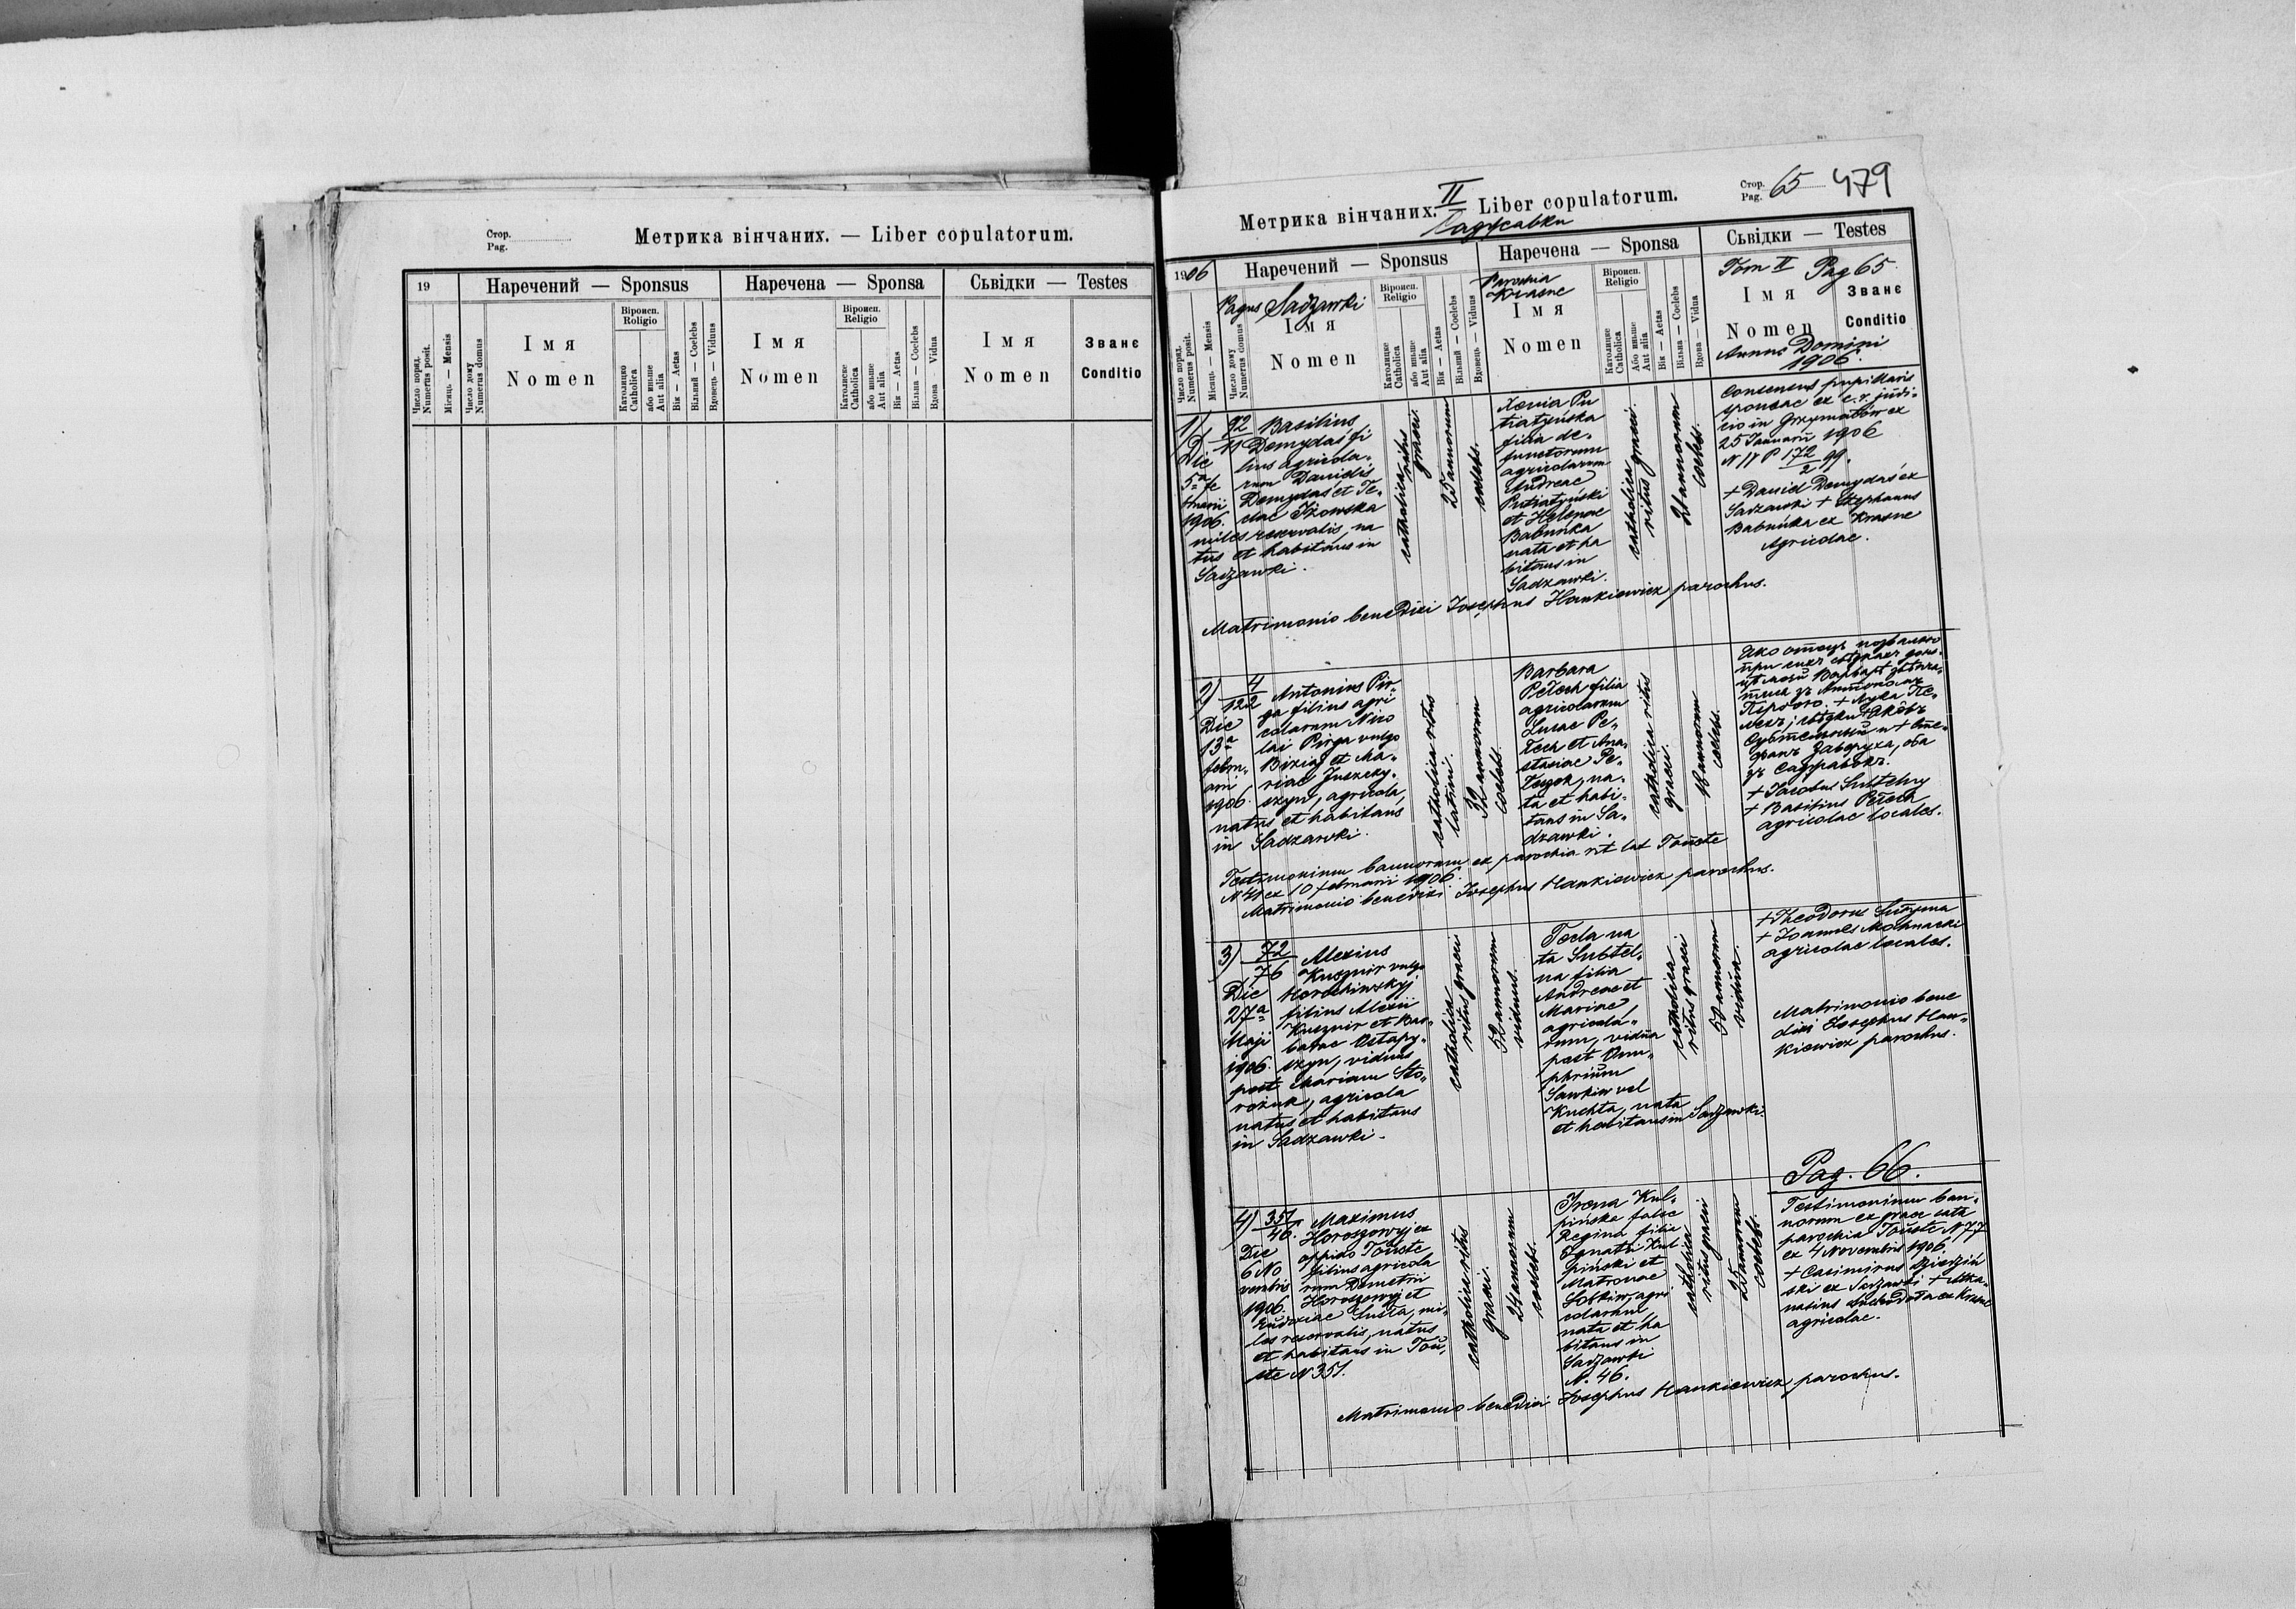 Стор.
Pag.
Метрика вінчаних. — Liber copulatorum.
19
Наречений — Sponsus
Наречена — Sponsa
Сьвідки — Testes
Число поряд.
Numerus posit.
Місяць — Mensis
Число дому
Numerus domus
Імя
Nomen
Віроисп.
Religio
Католицке
Catholica
або иньше
Aut alia
Вік — Aetas
Вільний — Coelebs
Вдовець — Viduus
Імя
Nomen
Віроисп.
Religio
Католицке
Catholica
або иньше
Aut alia
Вік — Aetas
Вільна — Coelebs
Вдова — Vidua
Імя
Nomen
Званє
Conditio
Стор.
Pag. 65 479
Метрика вінчаних. II Liber copulatorum.
Саджавки
1906
Наречений — Sponsus
Наречена — Sponsa
Сьвідки — Testes
Число поряд.
Numerus posit.
Місяць — Mensis
Число дому
Numerus domus
Pagus Sadzawki
Імя
Nomen
Віроисп.
Religio
Католицке
Catholica
або иньше
Aut alia
Вік — Aetas
Вільний — Coelebs
Вдовець — Viduus
Parochia
Krasne
Імя
Nomen
Віроисп.
Religio
Католицке
Catholica
Або иньше
Aut alia
Вік — Aetas
Вільна — Coelebs
Вдова — Vidua
Tom II Pag 65.
Імя
Nomen
Званє
Conditio
Annus Domini
1906.
1/
Die
5a fe
bruarii
1906.
92
11
Basilius
Demydaś fi
lius agricola-
rum Danielis
Demydaś et Te-
clae Iżowska
miles reservalis, na
tus et habitans in
Sadzawki.
catholica ritus
graeci.
25 annorum
coelebs.
Xenia Pu
tiatyńska
filia de-
functorum
agricolarum
Andreae
Putiatyński
et Helenae
Babuńka
nata et ha
bitans in
Sadzawki.
catholica
ritus graeci.
21 annorum
coelebs.
Consensus pupillaris
sponsae ex c. r. judi-
cio in Grzymałów ex
25 Januarii 1906
N 11 P 172/2 99.
+ Daniel Demydaś ex
Sadzawki + Stephanus
Babuńka ex Krasne
Agricolae.
Matrimonio benedixi Josephus Hankiewicz parochus.
2)
Die
13a
febru-
arii
1906.
4
122
Antonius Pir-
ga filius agri
colarum Nico
lai Pirga vulgo
et Ma-
riae Juszczy-
szyn, agricola,
natus et habitans
in Sadzawki.
catholica ritus
latini.
32 annorum
coelebs.
Barbara
Pełech filia
agricolarum
Lucae Pe-
łech et Ana-
stasiae Pe-
na-
ta et habi-
tans in Sa-
dzawki.
catholica ritus
graeci.
18 annorum
coelebs.
Яко отець позваляю
при сихъ свѣдкахъ дон-
цѣ моѣй Варварѣ
зъ Антономъ
+ Лука Пе-
лехъ; свѣдки + Яковъ
Субтельный и + Сте-
фанъ Заверуха, оба
зъ Саджавокъ.
+ Jacobus Subtelny
+ Basilius Pełech
agricolae locales.
Testimonium bannorum ex parochia rit lat Touste
N 41 ex 10 februarii 1906.
Matrimonio benedixi Josephus Hankiewicz parochus.
3)
Die
27a
Maji
1906.
72
76
Alexius
Kusznir vulgo
Horochiwskyj
filius Alexii
Kusznir et Bar-
barae Ostapy-
szyn, viduus
post Mariam Sto-
rożuk, agricola
natus et habitans
in Sadzawki.
catholica
ritus graeci
52 annorum
viduus.
Tecla na
ta Subtel-
na filia
Andreae et
Mariae
agricola-
rum, vidua
post Onu-
phrium
Sawkiw vel
Kuchta, nata
et habitans in Sadzawki.
catholica
ritus graeci
50 annorum
vidua.
+ Theodorus
+ Joannes Mochnacki
agricolae locales.
Matrimonio bene
dixi Josephus Han-
kiewicz parochus.
Pag. 66.
4)
Die
6 No
vembris
1906.
351
46.
Maximus
Horoszowyj ex
oppido Touste
filius agricola
rum Demetrii
Horoszowyj et
Eudoxiae Susta, mi-
les reservalis, natus
et habitans in Tou-
ste N 351.
catholica ritus
graeci.
24 annorum
coelebs.
Irena Kul-
pińska false
Regina filia
Ignatii Kul
piński et
Matronae
Sobkiw, agri
colarum
nata et ha
bitans in
Sadzawki
N. 46.
catholica
ritus graeci
25
annorum
coelebs.
Testimonium ban-
norum ex graec cath
parochia Touste N 77
ex 4 Novembris 1906.
+ Casimirus Dziedziń
ski ex Sadzawki + Atha-
nasius ex Krasne
agricolae.
Matrimonio benedixi Josephus Hankiewicz parochus.